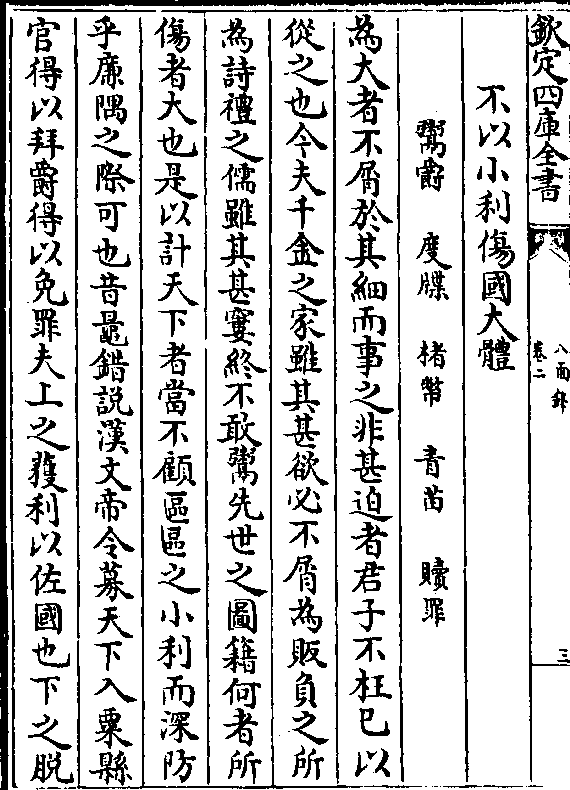 欽定四庫全書
八面鋒
卷二
三
不以小利傷國大體
鬻爵 度牒 楮幣 青苗 贖罪
為大者不屑於其細而事之非甚迫者君子不枉已以
從之也今夫千金之家雖其甚欲必不屑為販負之所
為詩禮之儒雖其甚窶終不敢鬻先世之圖籍何者所
傷者大也是以計天下者當不顧區區之小利而深防
乎廉隅之際可也昔鼂錯説漢文帝令募天下入粟縣
官得以拜爵得以免罪夫上之獲利以佐國也下之脱